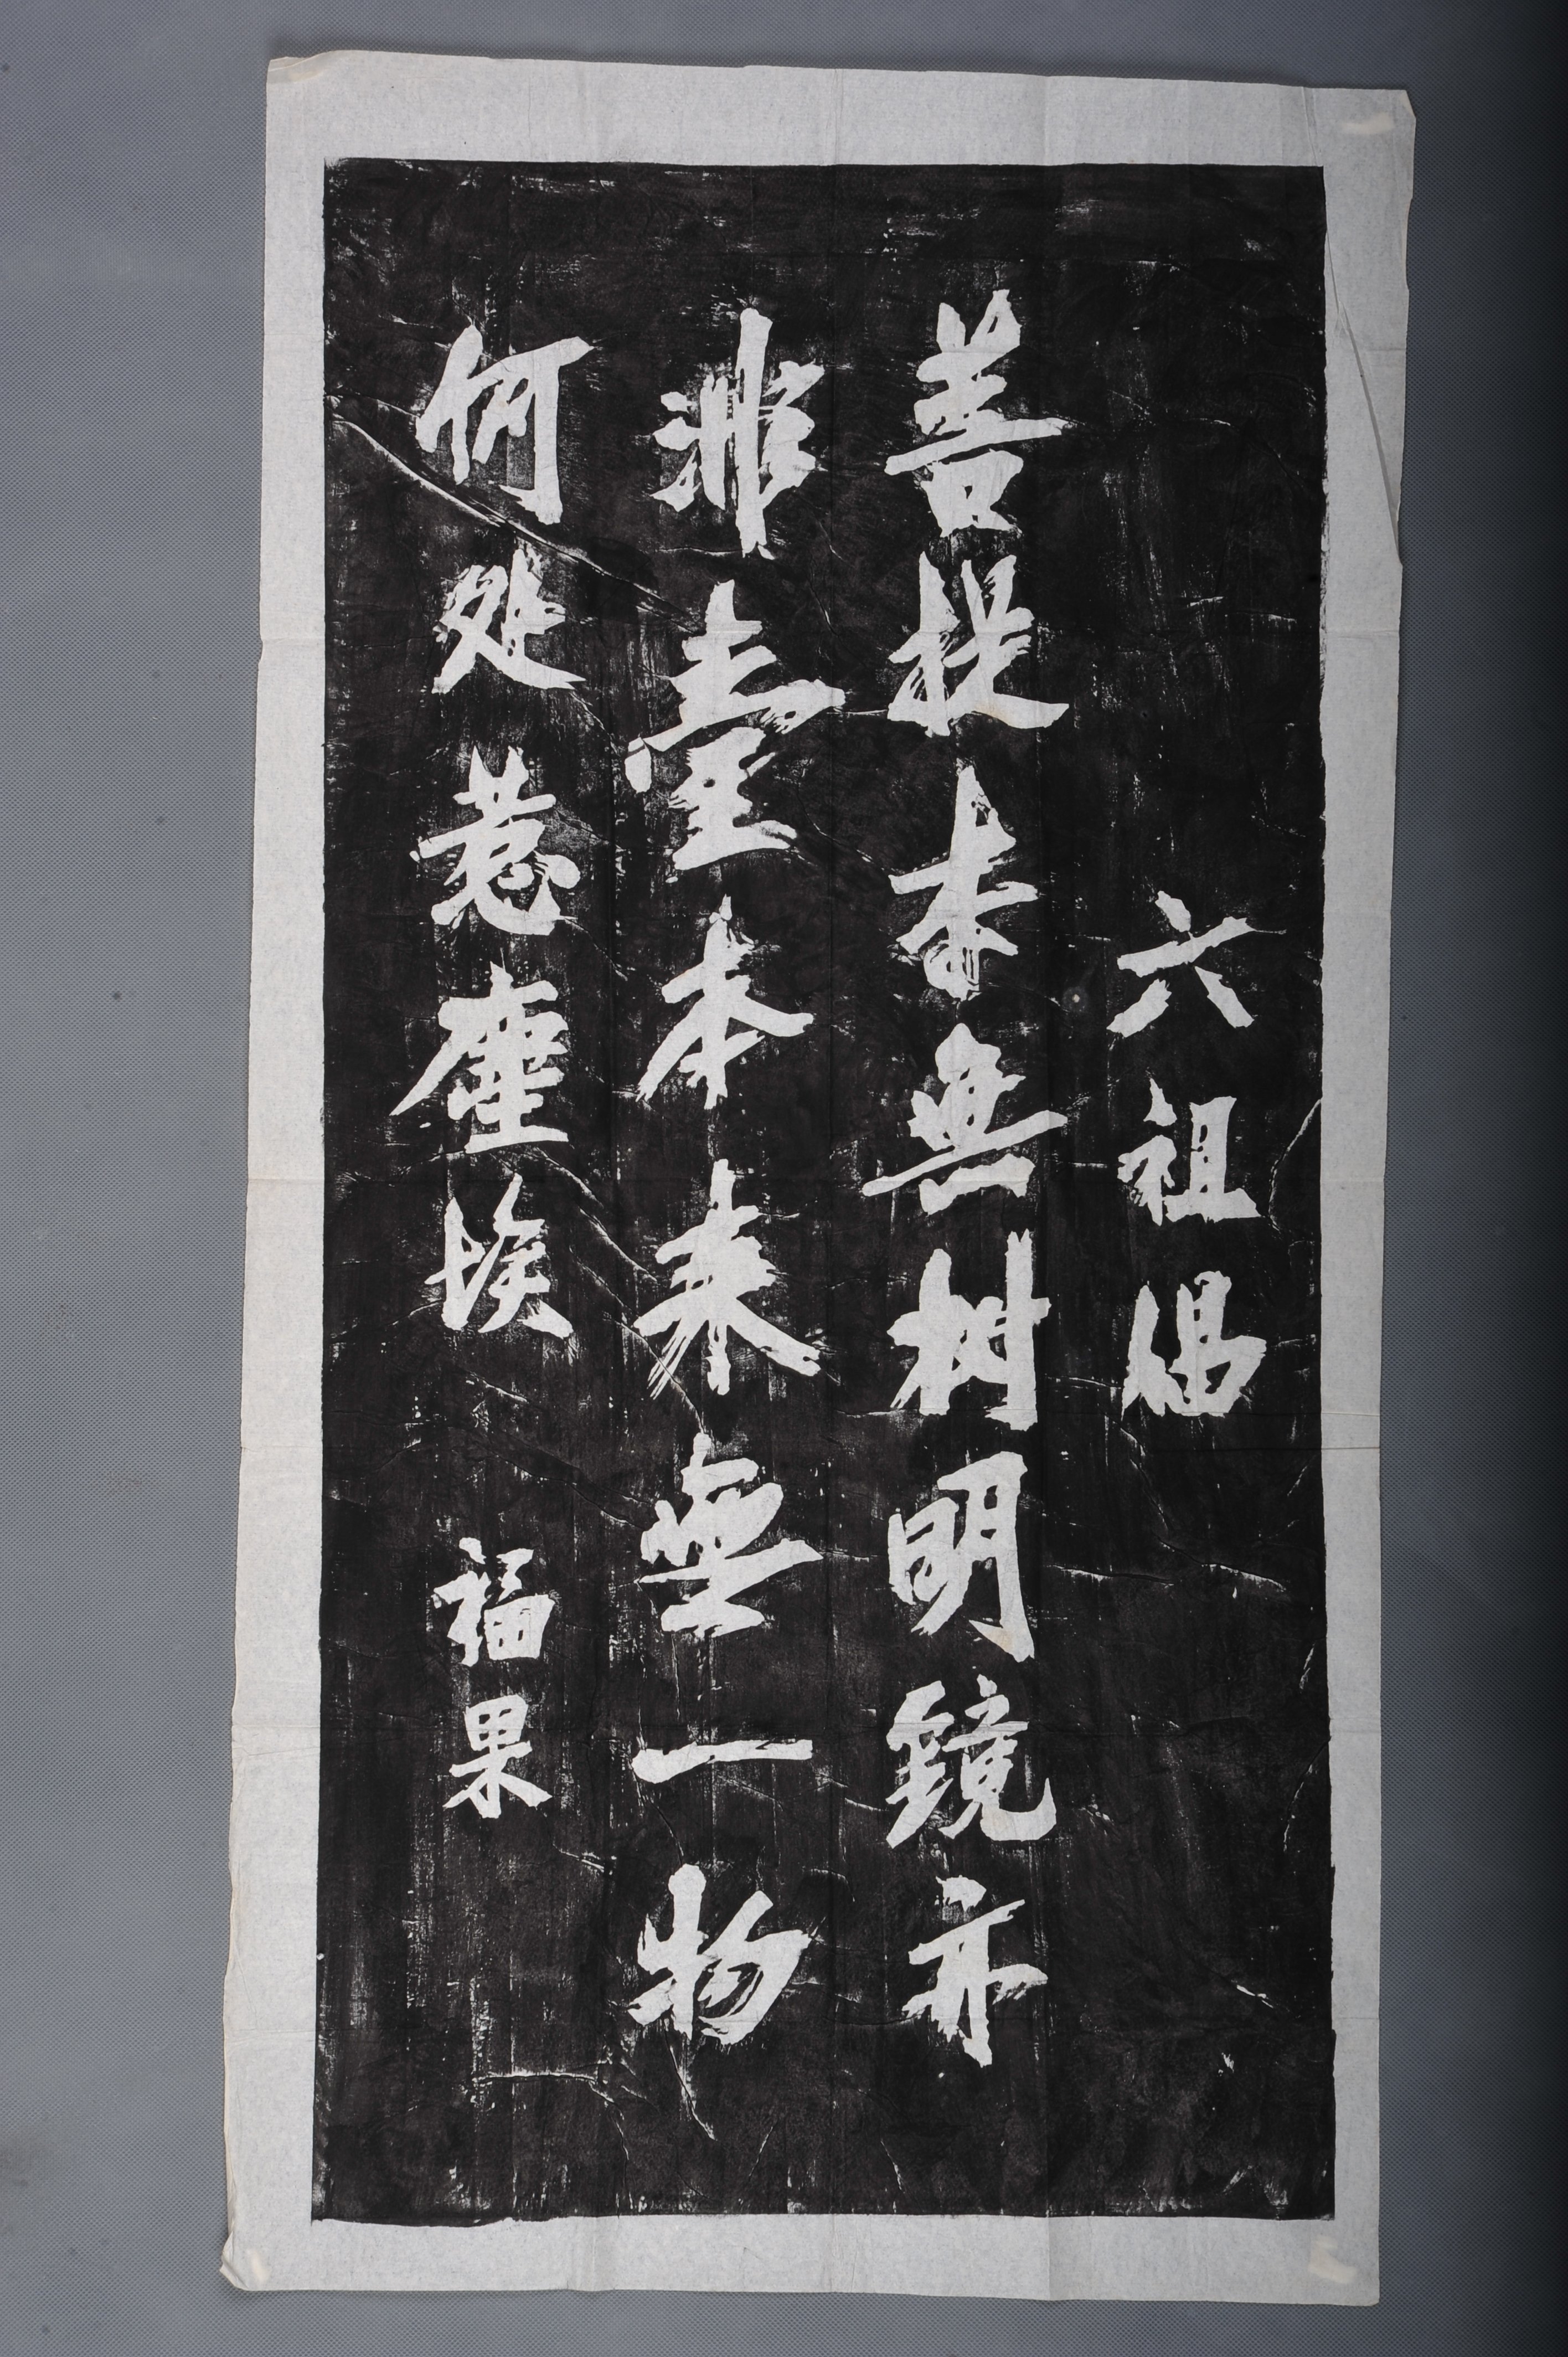 六祖偈
菩提本無树明鏡亦
非臺本来無一物
何处惹塵埃 福果